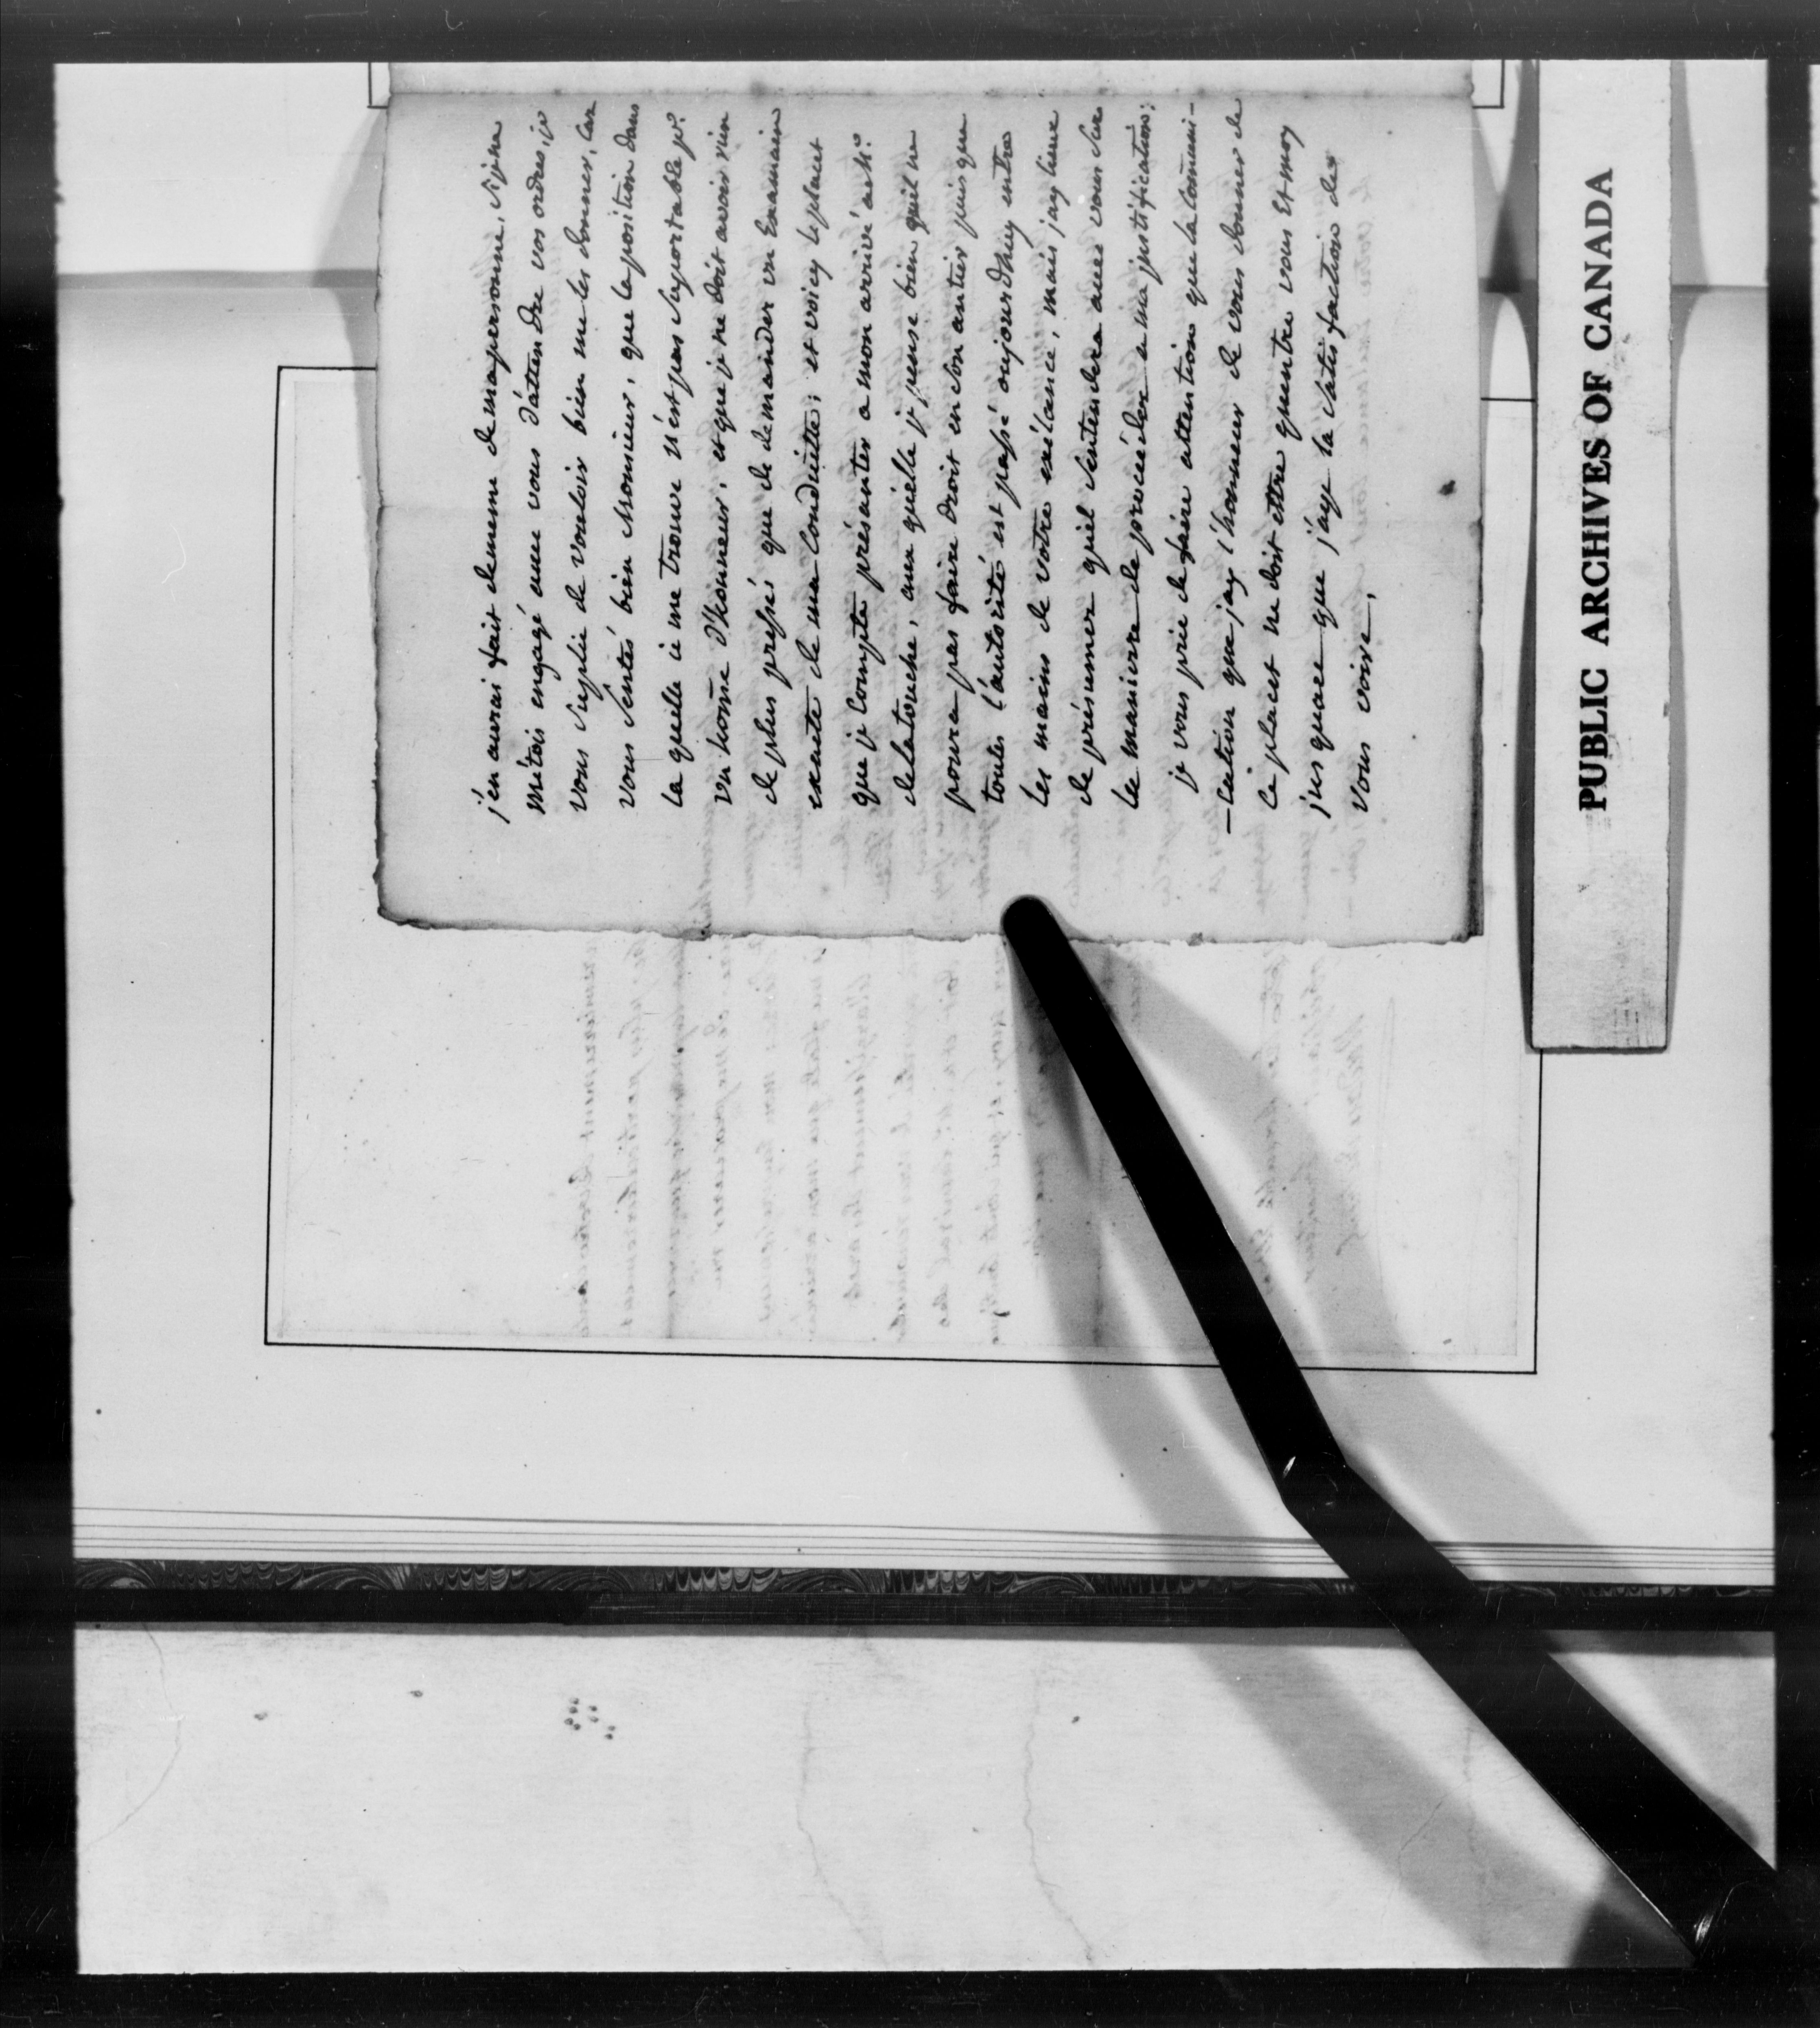 j'en aurai fait dememe de ma personne, si je ne
m'étois engagé envers vous d'atten dre vos ordres, je
vous suplie de vouloir bien me les donner, car
vous sentés bien Monsieur, que la position dans
la quelle je me trouve n'est pas suportable pr.
un home d'honneur, et que je ne doit avoir rien
de plus pressés que de demander un Examain
exacte de ma Conduitte; et voicy le placet
que je Compte présanter a mon arrivé a Mr.
delatouche, au quelle je pense bien qu'il ne
poura pas faire droit en son antier puis que
toutes l'autorité est passé aujourd'huy entre
les mains de votre exélance, mais jay lieux
de présumer qu'il s'entendera avec vous sur
la maniere de procéder a ma justification;
je vous prie de faire attention que la comuni-
-cation que jay l'honneur de vous donner de
ce placet ne doit ettre qu'entre vous Et moy
jus quace que j'aye la satis faction de
vous voire,
PUBLIC ARCHIVES OF CANADA